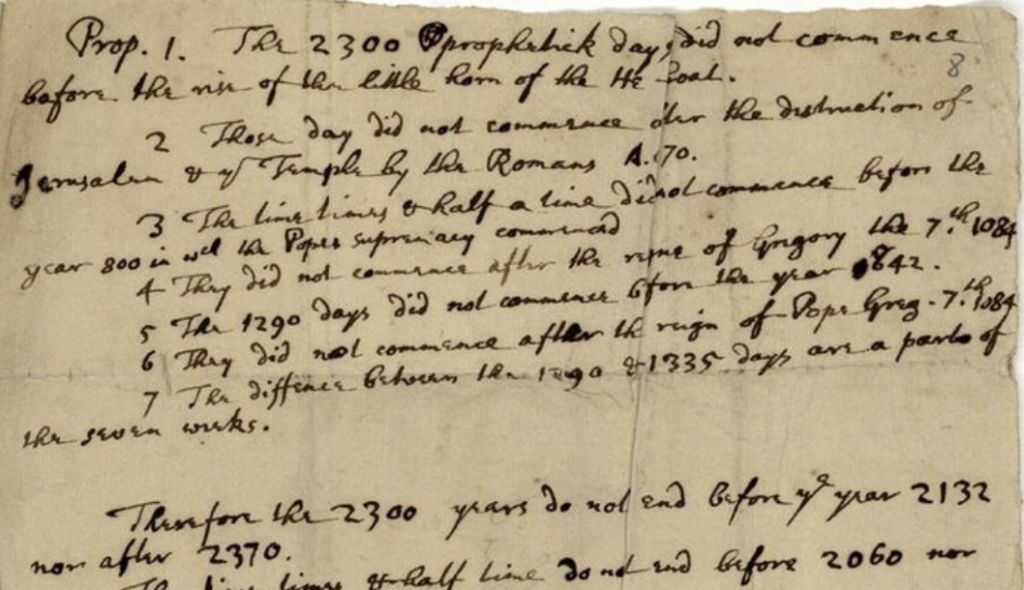 Prop. 1. The 2300 prophetick days did not commence
before the rise of the little horn of the He Goat.
2 Those day did not commence after the destruction of
Jerusalem & ye Temple by the Romans A. 70.
3 The time times & half a time did not commence before the
year 800 in wch the Popes supremacy commenced
4 They did not commence after the reigne of Gregory the 7th. 1084
5 The 1290 days did not commence before the year 842.
6 They did not commence after the reign of Pope Greg. 7th. 1084
7 The diffence between the 1290 & 1335 days are a parts of
the seven weeks.
Therefore the 2300 years do not end before ye year 2132
nor after 2370.
The time times & half time do not end before 2060 nor
8